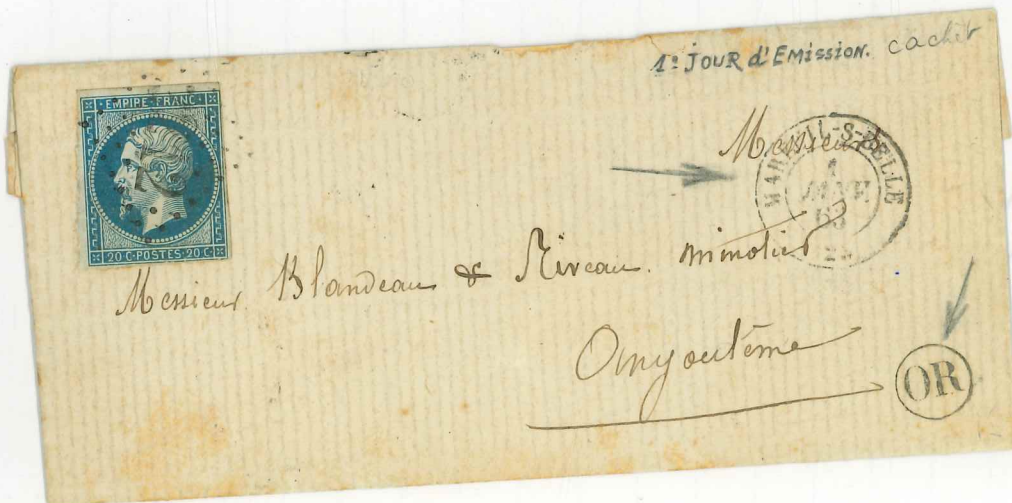 1: JOUR d'EMISSION. cachet
EMPIRE·FRANC·
20 C·POSTES·20 C·
Messieurs
MAREUIL-S-BELLE
1
JANV
63
24
Messieur Blandeau & Niveau. minotier
Angoulême
OR